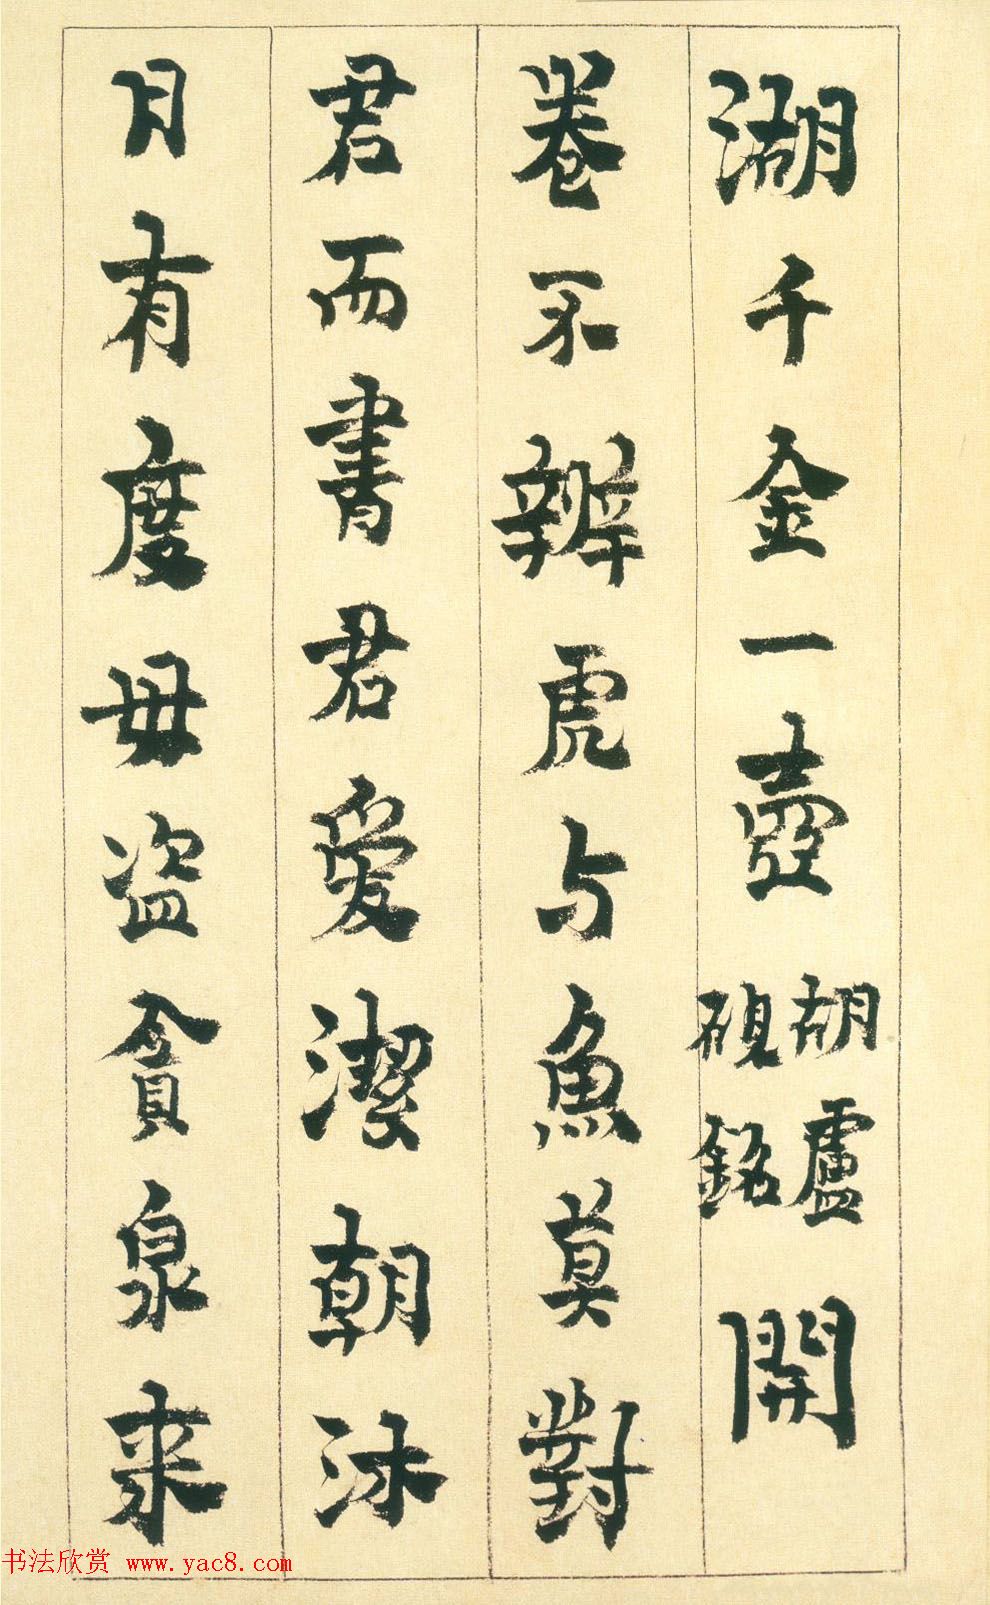 湖千金一壺
胡盧
硯銘
開
卷不辨虎与魚莫對
君而書君愛潔朝沐
月有度毋盜貪泉来
书法欣赏 www.yac8.com